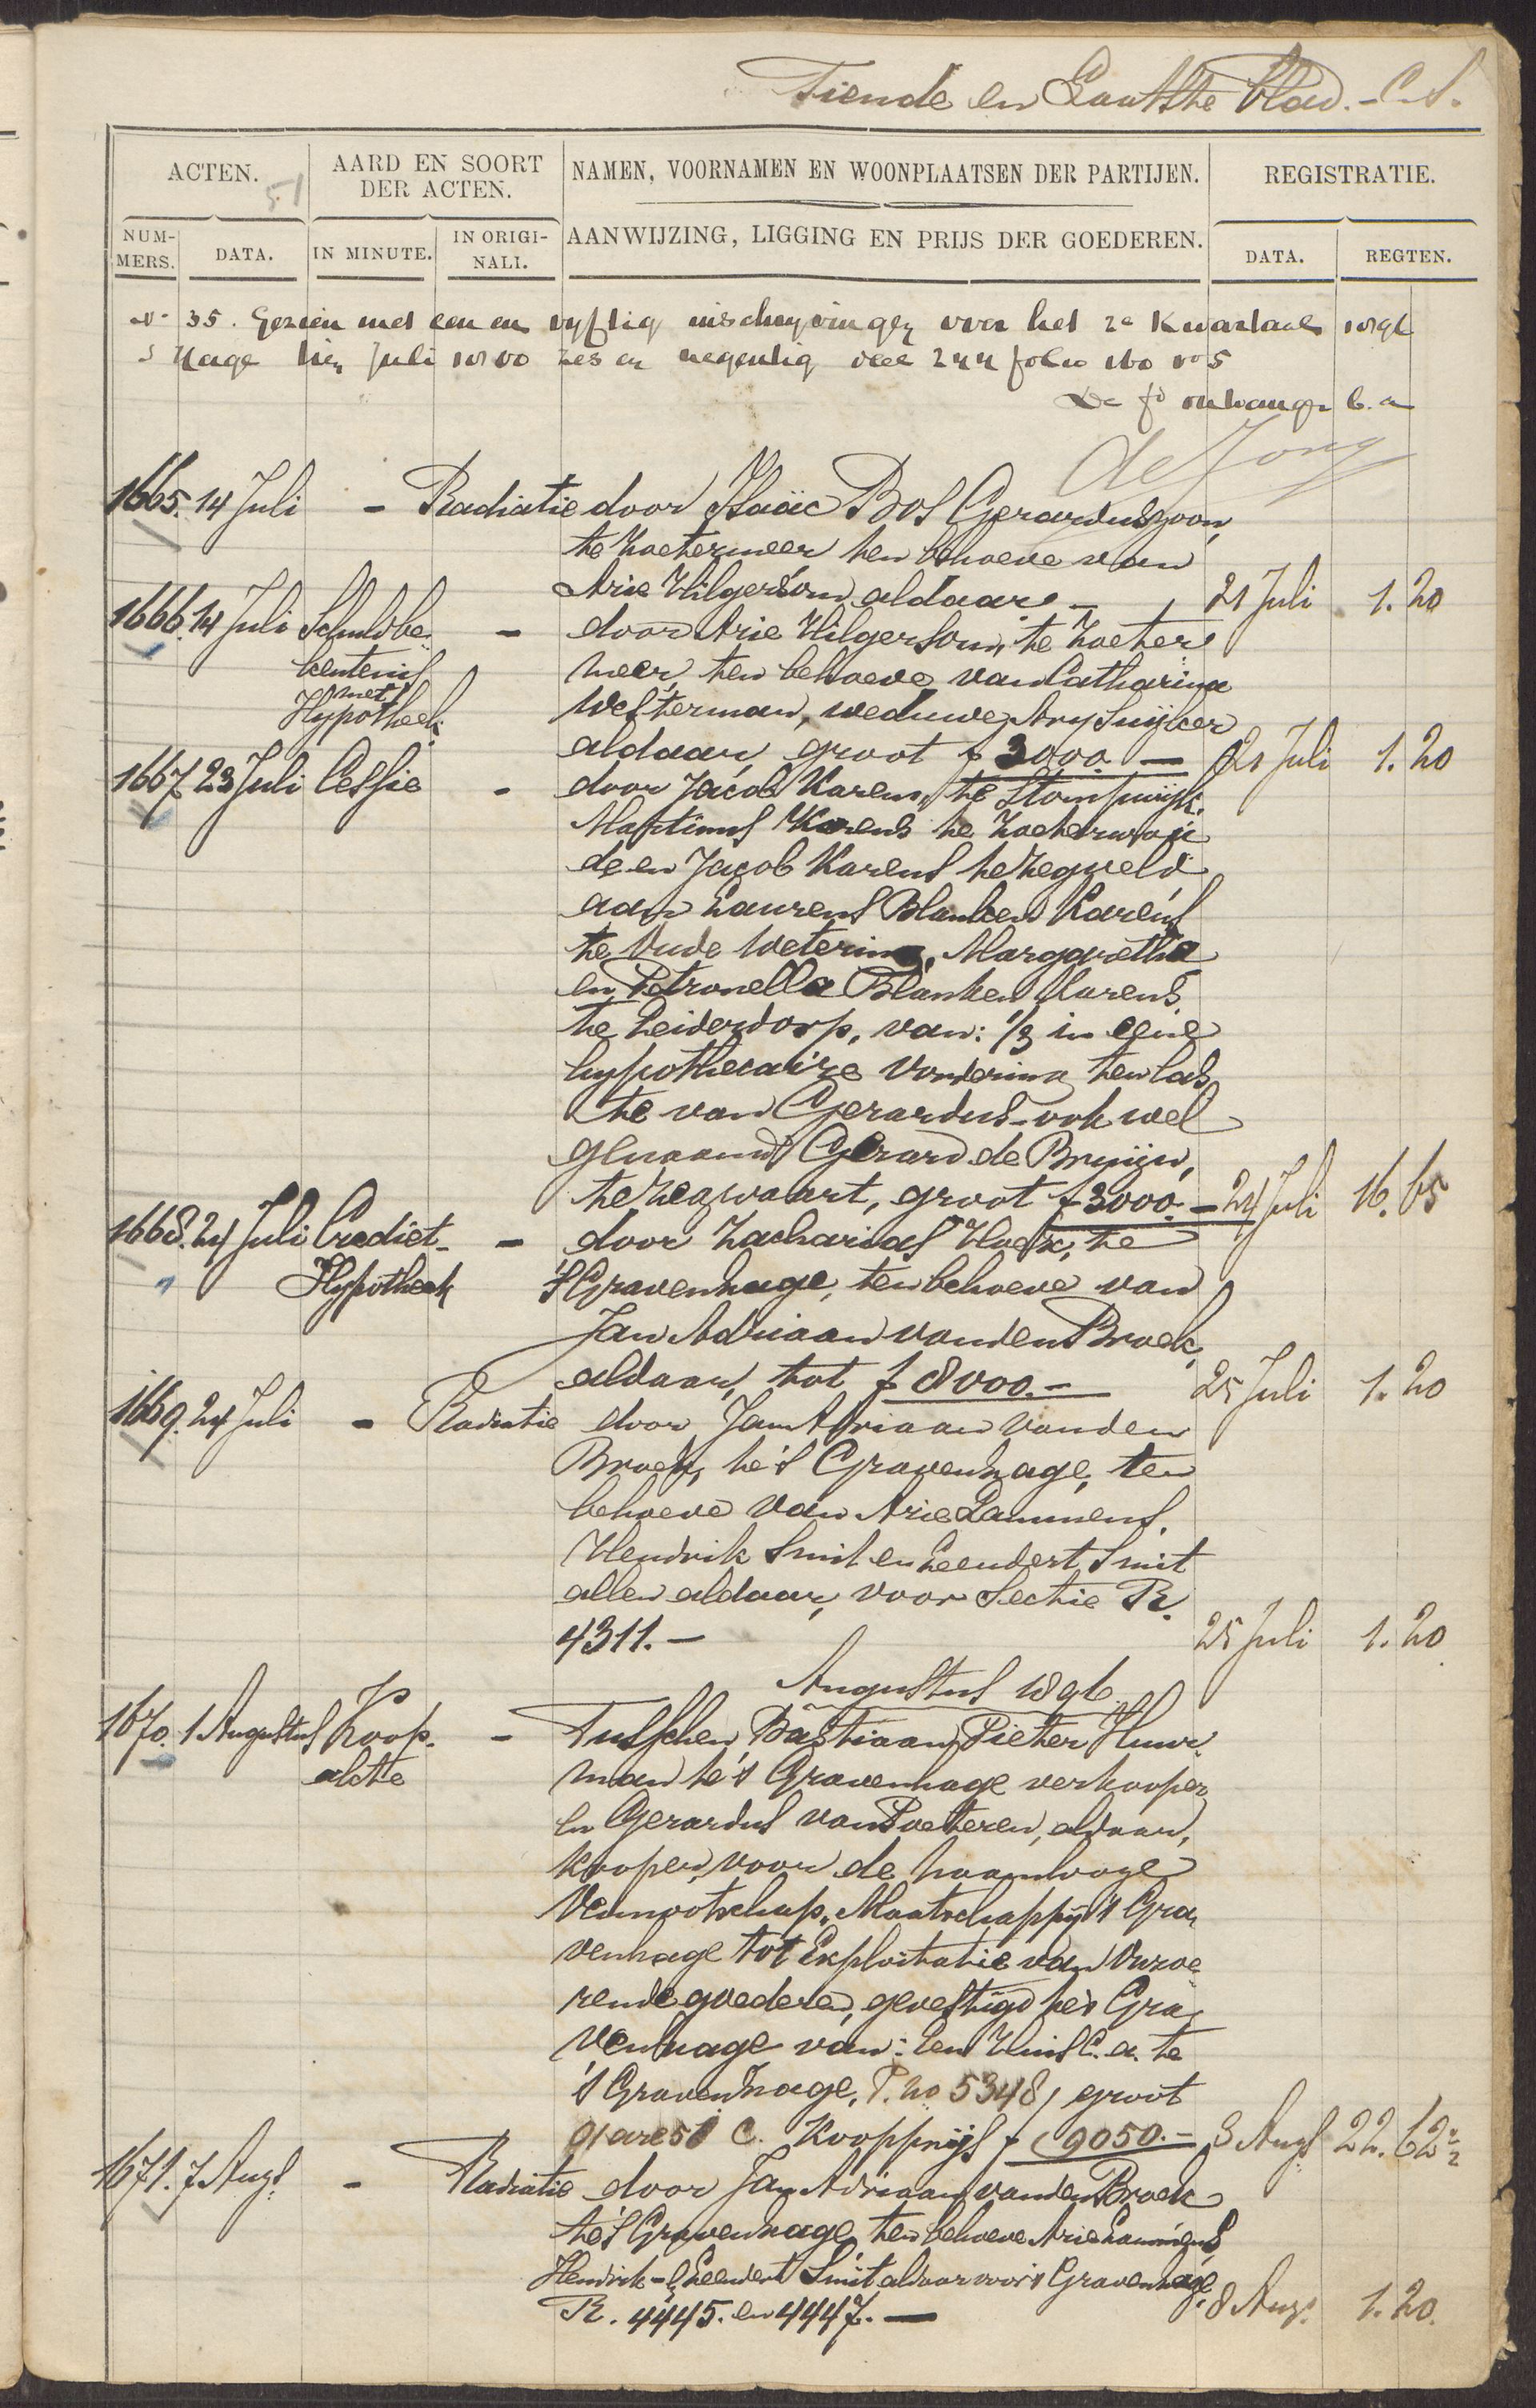 Tiende en Laatste blad. - C.S.
ACTEN. AARD EN SOORT DER ACTEN. NAMEN, VOORNAMEN EN WOONPLAATSEN DER PARTIJEN. REGISTRATIE.
51
NUM-MERS. DATA. IN MINUTE. IN ORIGI-NALI. AANWIJZING, LIGGING EN PRIJS DER GOEDEREN. DATA. REGTEN.
No 35. Gezien met een en vijftig inschrijvingen voor het 2e Kwartaal 1896
's Hage tien Juli 1800 zes en negentig deel 244 folio 160 no 5
De fd ontvanger b.a
de Jong
1665. 14 Juli - Radiatie door Isaäc Bos Gerarduszoon,
te Zoetermeer ten behoeve van
Arie Hilgersom aldaar. - 21 Juli 1. 20
1666. 14 Juli Schuldbe- - door Arie Hilgersom, te Zoeter
kentenis meer, ten behoeve van Catharina
met
Hypotheek. Westerman, weduwe Ary Suijker
aldaar, groot f 3000. — 21 Juli 1. 20
1667. 23 Juli Cessie - door Jacob Karens, te Stompwijk.
Martinus Karens te Zoeterwou
de en Jacob Karens te Zegveld
aan Laurens Blanken Karens
te Oude Wetering, Margaretha
en Petronella Blanken Karens
te Leiderdorp, van: 1/3 in eene
hypothecaire vordering ten las
te van Gerardus-ook wel
genaamd Gerard de Bruijn,
te Zegwaart, groot f 3000. - 24 Juli 16. 65
1668. 24 Juli Crediet- - door Zacharias Hoek, te
Hypotheek 's Gravenhage, ten behoeve van
Jan Adriaan van den Broek,
aldaar, tot f 8000.- 25 Juli 1. 20
1669. 24 Juli - Radiatie door Jan Adriaan van den
Broek, te 's Gravenhage, ten
behoeve van Arie Lammens,
Hendrik Smit en Leendert Smit
allen aldaar, voor Sectie R.
4311. - 25 Juli 1. 20
Augustus 1896
1670. 1 Augustus Koop- - Tusschen Bastiaan Pieter
akte man te 's Gravenhage verkooper
en Gerardus van Poeteren, aldaar,
kooper, voor de naamlooze
Vennootschap, Maatschappij 's Gra
venhage tot Exploitatie van Onroe
rende goederen, gevestigd te 's Gra
venhage van: een Huis c.a. te
's Gravenhage, P. no 5348, groot
91 c. Koopprijs f 9050.- 3 Augs 22. 62½
1671. 7 Augs. - Radiatie door Jan Adriaan van den Broek
te 's Gravenhage, ten behoeve Arie Lammens,
Hendrik - & Leendert Smit aldaar voor 's Gravenhage,
R. 4445. en 4447. — 8 Augs. 1. 20.